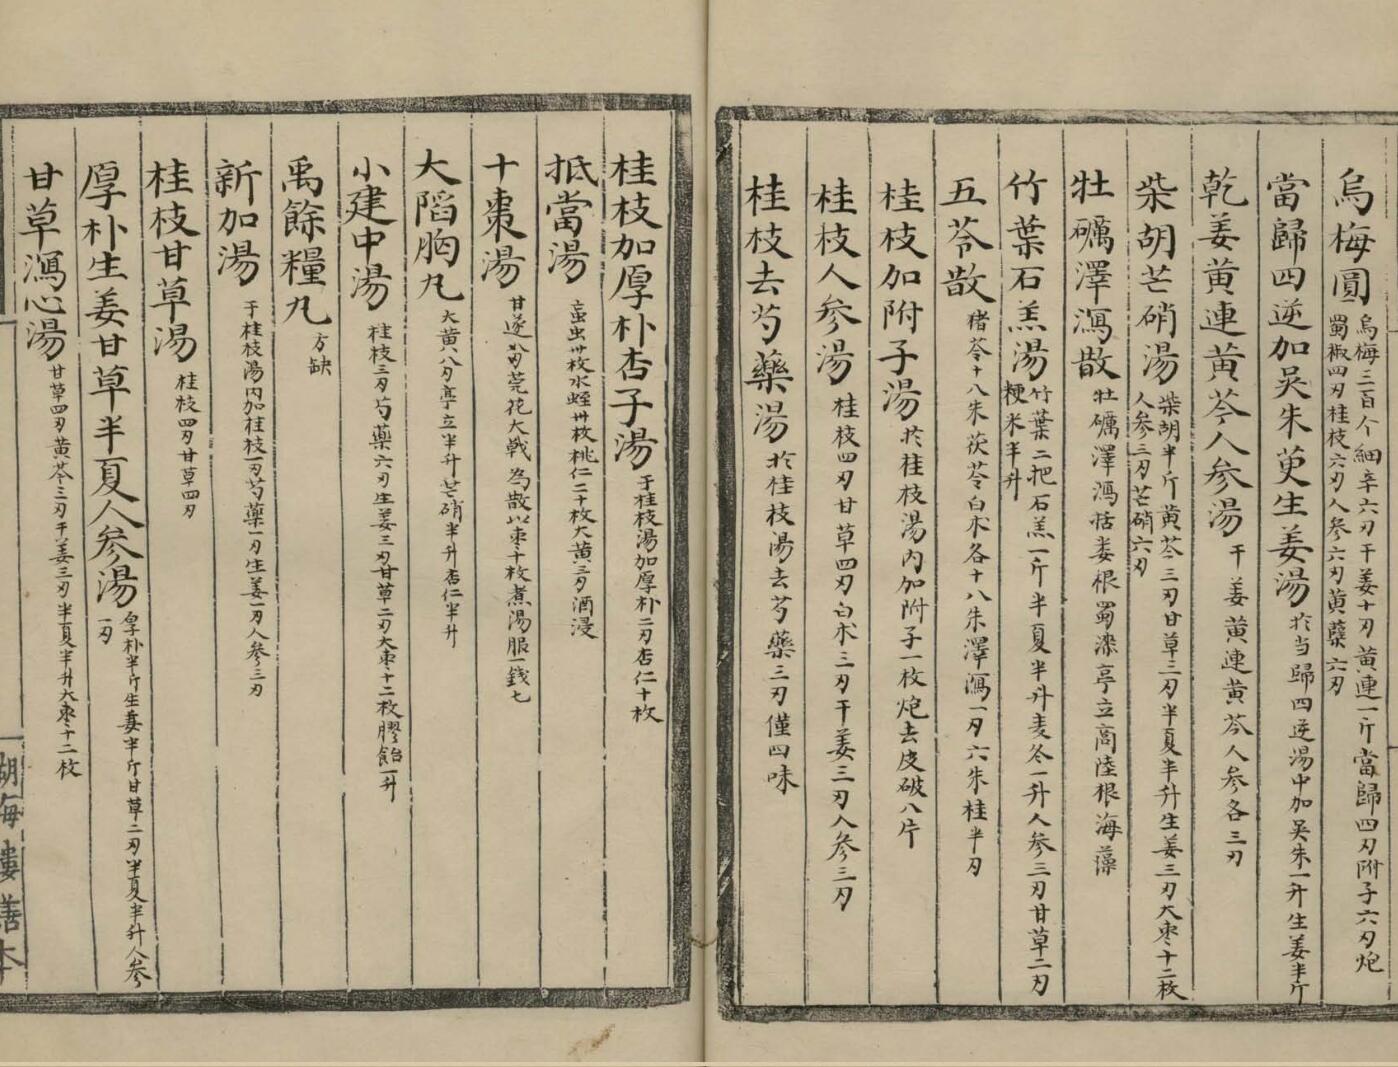 烏梅圓 烏梅三百个細辛六刃干姜十刃黃連一斤當歸四刃附子六刃炮
蜀椒四刃桂枝六刃人參六刃黃蘗六刃
當歸四逆加吳朱萸生姜湯 於当歸四逆湯中加吳朱一升生姜半斤
乾姜黃連黃芩人參湯 干姜黃連黃芩人參各三刃
柴胡芒硝湯 柴胡半斤黃芩三刃甘草三刃半夏半升生姜三刃大枣十二枚
人參三刃芒硝六刃
牡礪澤瀉散 牡礪澤瀉括娄根蜀漆亭立商陸根海藻
竹葉石羔湯 竹葉二把石羔一斤半夏半升麦冬一升人參三刃甘草二刃
粳米半升
五苓散 猪苓十八朱茯苓白朮各十八朱澤瀉一刃六朱桂半刃
桂枝加附子湯 於桂枝湯内加附子一枚炮去皮破八片
桂枝人參湯 桂枝四刃甘草四刃白朮三刃干姜三刃人參三刃
桂枝去芍藥湯 於桂枝湯去芍藥三刃僅四味
桂枝加厚朴杏子湯 于桂枝湯加厚朴二刃杏仁十枚
抵當湯 䖟虫卅枚水蛭卅枚桃仁二十枚大黃三刃酒浸
十棗湯 甘遂芫花大戟為散以枣十枚煮湯服一錢七
大陷胸丸 大黃八刃亭立半升芒硝半升杏仁半升
小建中湯 桂枝三刃芍藥六刃生姜三刃甘草二刃大枣十二枚膠飴一升
禹餘糧丸 方缺
新加湯 于桂枝湯内加桂枝一刃芍藥一刃生姜一刃人參三刃
桂枝甘草湯 桂枝四刃甘草四刃
厚朴生姜甘草半夏人參湯 厚朴半斤生姜半斤甘草二刃半夏半升人參
一刃
甘草瀉心湯 甘草四刃黃芩三刃干姜三刃半夏半升大枣十二枚
湖海樓善本